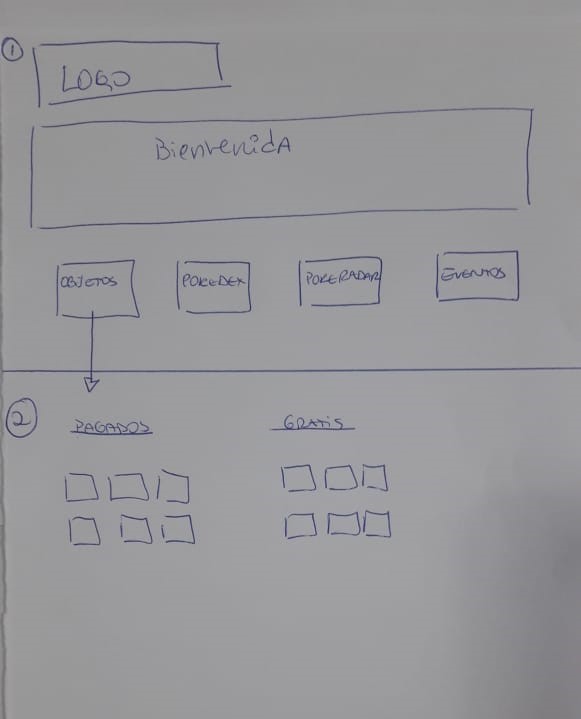 1
LOGO
Bienvenida
OBJETOS POKEDEX POKERADAR EVENTOS
2
PAGADOS GRATIS